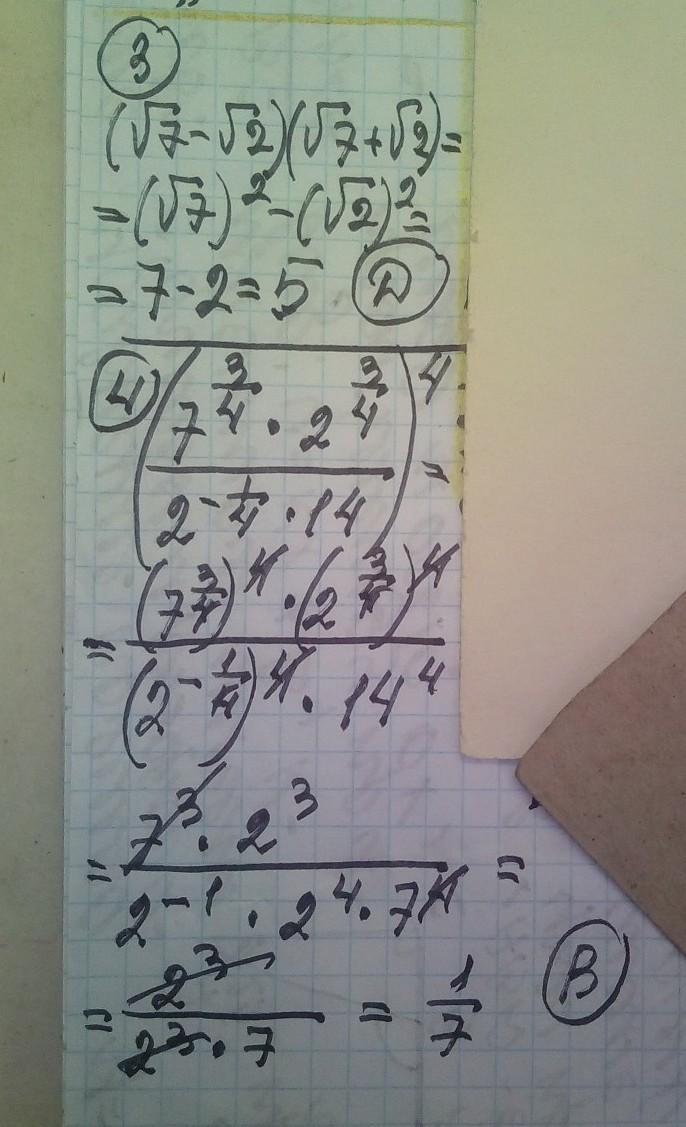 ③
(√7-√2)(√7+√2)=
=(√7)²-(√2)²=
=7-2=5 Ⓓ
④ ((7^(3/4) · 2^(3/4)) / (2^(-1/4) · 14))^4 =
= ((7^(3/4))^4 · (2^(3/4))^4) / ((2^(-1/4))^4 · 14^4)
= (7^3 · 2^3) / (2^(-1) · 2^4 · 7^4) =
= 2^3 / (2^3 · 7) = 1/7 Ⓑ